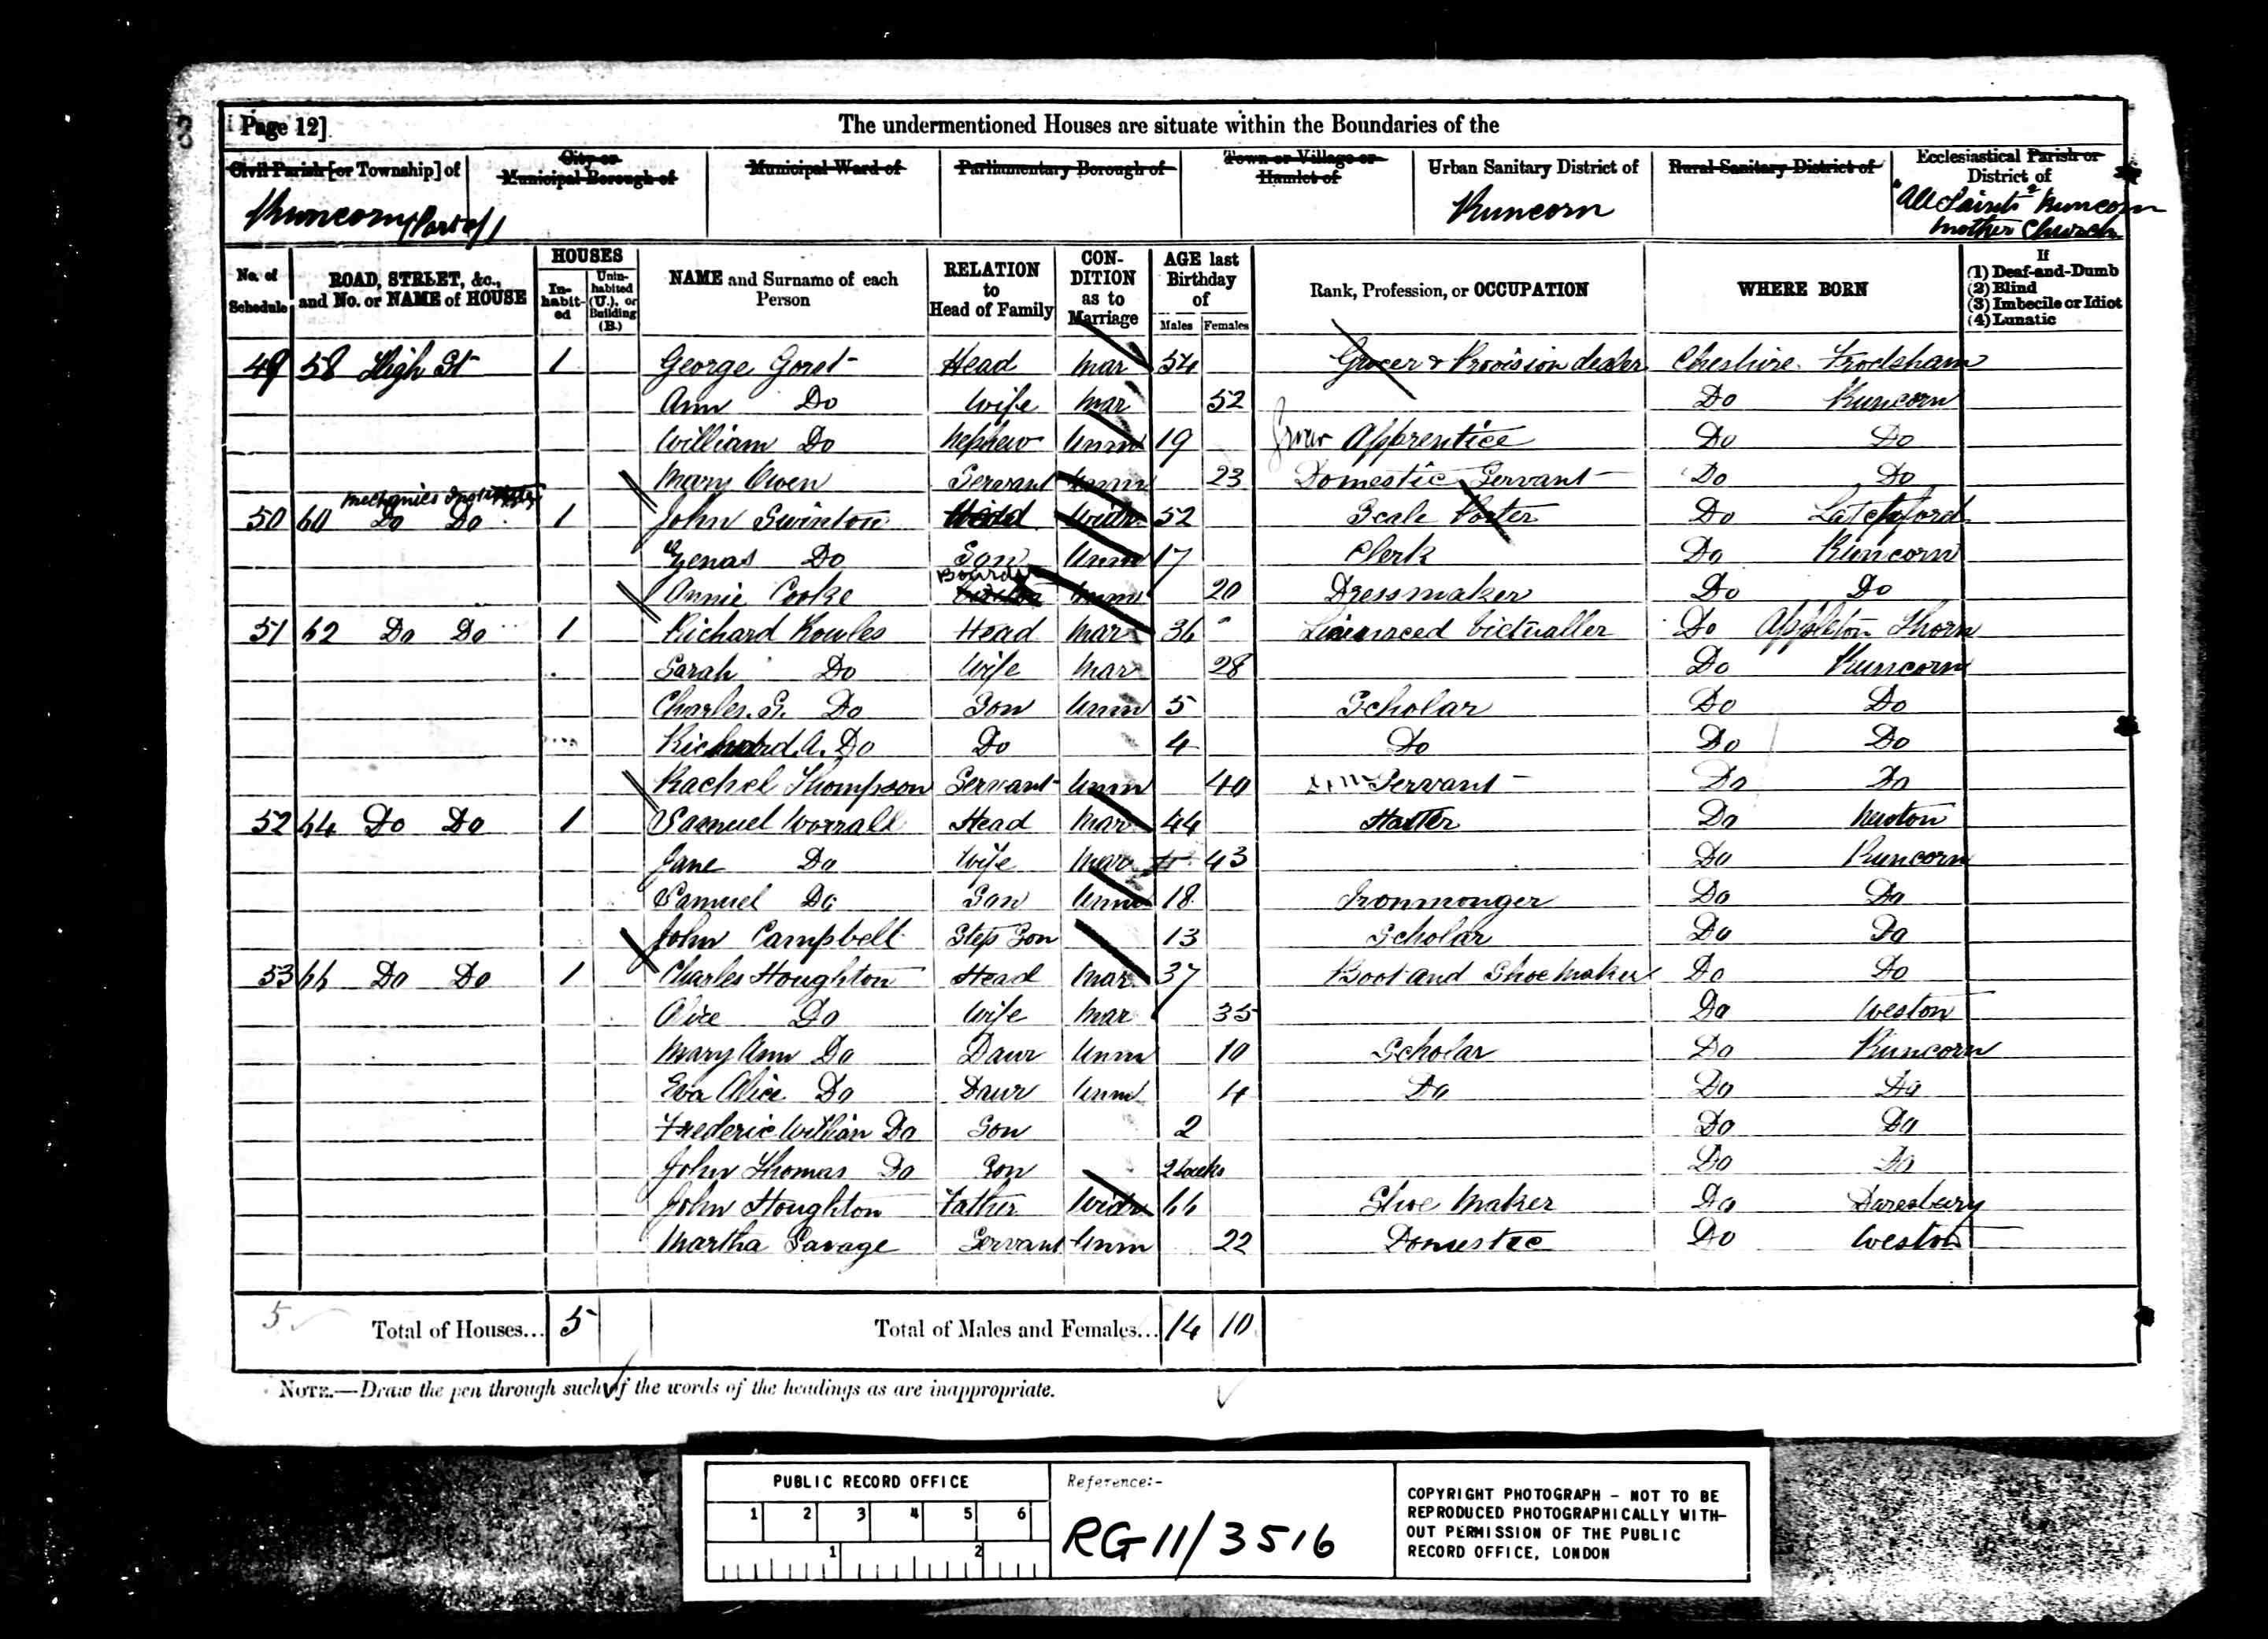 Page 12]
The undermentioned Houses are situate within the Boundaries of the
Civil Parish [or Township] of
City or Municipal Borough of
Municipal Ward of
Parliamentary Borough of
Town or Village or Hamlet of
Urban Sanitary District of
Rural Sanitary District of
Ecclesiastical Parish or District of
Runcorn (Part of)
Runcorn
"All Saints" Runcorn
Mother Church
No. of Schedule
ROAD, STREET, &c., and No. or NAME of HOUSE
HOUSES
Inhabited
Uninhabited (U.), or Building (B.)
NAME and Surname of each Person
RELATION to Head of Family
CONDITION as to Marriage
AGE last Birthday of
Males Females
Rank, Profession, or OCCUPATION
WHERE BORN
If
(1) Deaf-and-Dumb
(2) Blind
(3) Imbecile or Idiot
(4) Lunatic
49 58 High St 1 George Gorst Head Mar 54 Grocer & Provision dealer Cheshire Frodsham
Ann Do Wife Mar 52 Do Runcorn
William Do Nephew Unm 19 Grocer Apprentice Do Do
Mary Owen Servant Unm 23 Domestic Servant Do Do
Mechanics Institute
50 60 Do Do 1 John Swinton Head Widr 52 Scale Porter Do Latchford
Zenas Do Son Unm 17 Clerk Do Runcorn
Annie Cooke Boarder Unm 20 Dressmaker Do Do
51 62 Do Do 1 Richard Rowles Head Mar 36 Licenced Victualler Do Appleton Thorn
Sarah Do Wife Mar 28 Do Runcorn
Charles. G. Do Son Unm 5 Scholar Do Do
Richard. A. Do Do 4 Do Do Do
Rachel Thompson Servant Unm 40 Servant Do Do
52 64 Do Do 1 Samuel Worrall Head Mar 44 Hatter Do
Jane Do Wife Mar 43 Do Runcorn
Samuel Do Son Unm 18 Ironmonger Do Do
John Campbell Step Son 13 Scholar Do Do
53 66 Do Do 1 Charles Houghton Head Mar 37 Boot and Shoe Maker Do Do
Alice Do Wife Mar 35 Do Weston
Mary Ann Do Daur Unm 10 Scholar Do Runcorn
Eva Alice Do Daur Unm 4 Do Do Do
Frederic William Do Son 2 Do Do
John Thomas Do Son 2 Weeks Do Do
John Houghton Father Widr 66 Shoe Maker Do Daresbury
Martha Savage Servant Unm 22 Domestic Do Weston
5 Total of Houses... 5 Total of Males and Females... 14 10
NOTE.—Draw the pen through such of the words of the headings as are inappropriate.
PUBLIC RECORD OFFICE
1 2 3 4 5 6
1 2
Reference:-
RG 11/3516
COPYRIGHT PHOTOGRAPH – NOT TO BE
REPRODUCED PHOTOGRAPHICALLY WITH-
OUT PERMISSION OF THE PUBLIC
RECORD OFFICE, LONDON